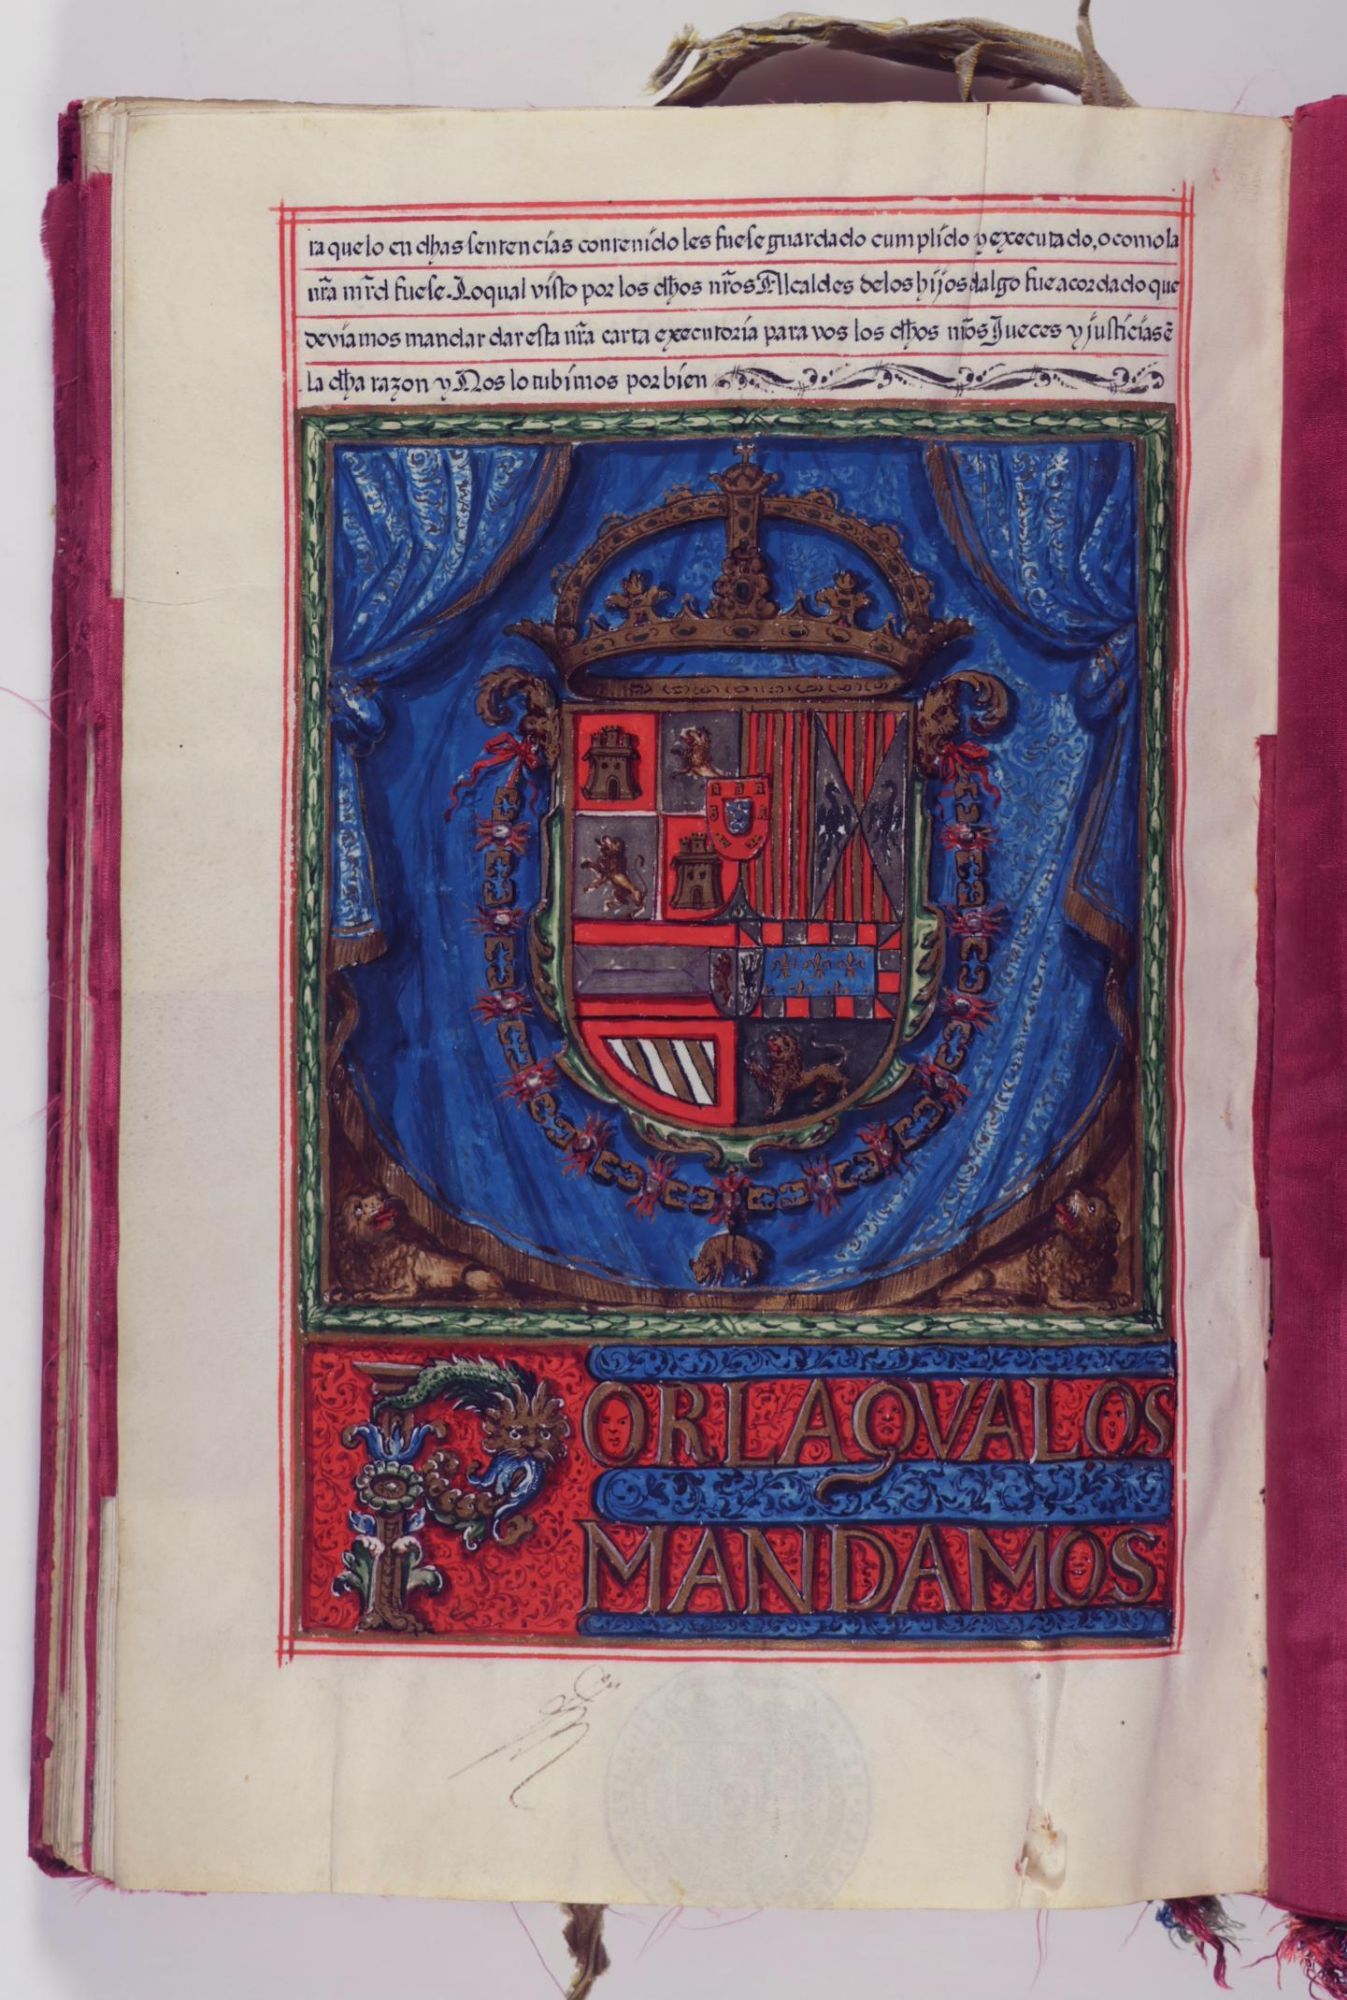 ra que lo en dhas sentencias contenido les fuese guardado cumplido y executado, o como la
nr̃a mr̃d fuese. Lo qual visto por los dhos nr̃os Alcaldes de los hijosdalgo fue acordado que
deviamos mandar dar esta nr̃a carta executoria para vos los dhos nr̃os Jueces y justicias ẽ
la dha razon y Nos lo tubimos por bien
PORLAQVALOS
MANDAMOS